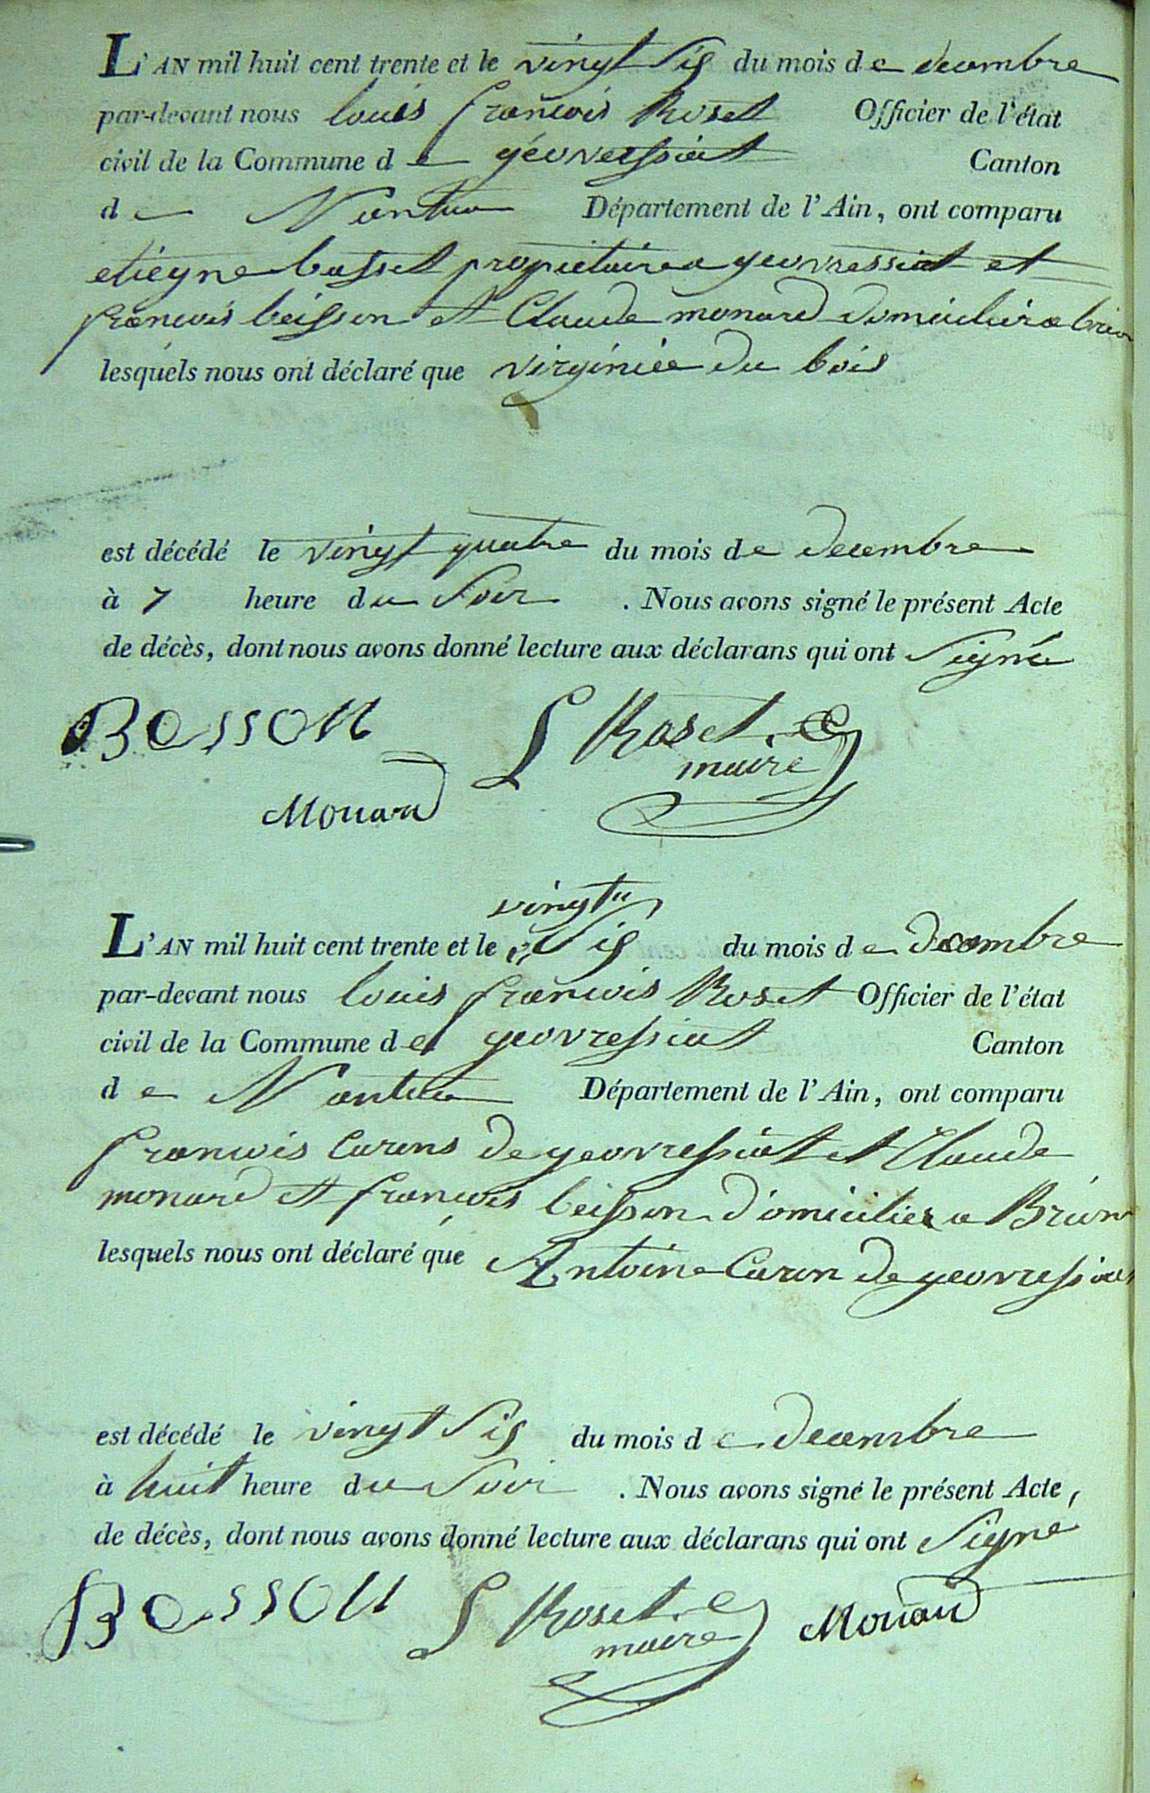 L'AN mil huit cent trente et le vingt Six du mois de decembre
par-devant nous louis francois Roset Officier de l'état
civil de la Commune de géovressiat Canton
de Nantua Département de l'Ain, ont comparu
etiegne basset propriétaire a geovressiat et
francois beisson et Claude monard domicilier a brion
lesquels nous ont déclaré que virginiee du bois
est décédé le vingt quatre du mois de decembre
à 7 heure du Soir . Nous avons signé le présent Acte
de décès, dont nous avons donné lecture aux déclarans qui ont Signé
BESSON L Roset
maire
Monard
vingt
L'AN mil huit cent trente et le Six du mois de decembre
par-devant nous louis francois Roset Officier de l'état
civil de la Commune de geovressiat Canton
de Nantua Département de l'Ain, ont comparu
francois Curens de geovressiat et Claude
monard et francois beisson domicilier a Brion
lesquels nous ont déclaré que Antoine Caron de geovressiat
est décédé le vingt Six du mois de decembre
à huit heure du Soir . Nous avons signé le présent Acte,
de décès, dont nous avons donné lecture aux déclarans qui ont Signé
BESSON L Roset Monard
maire